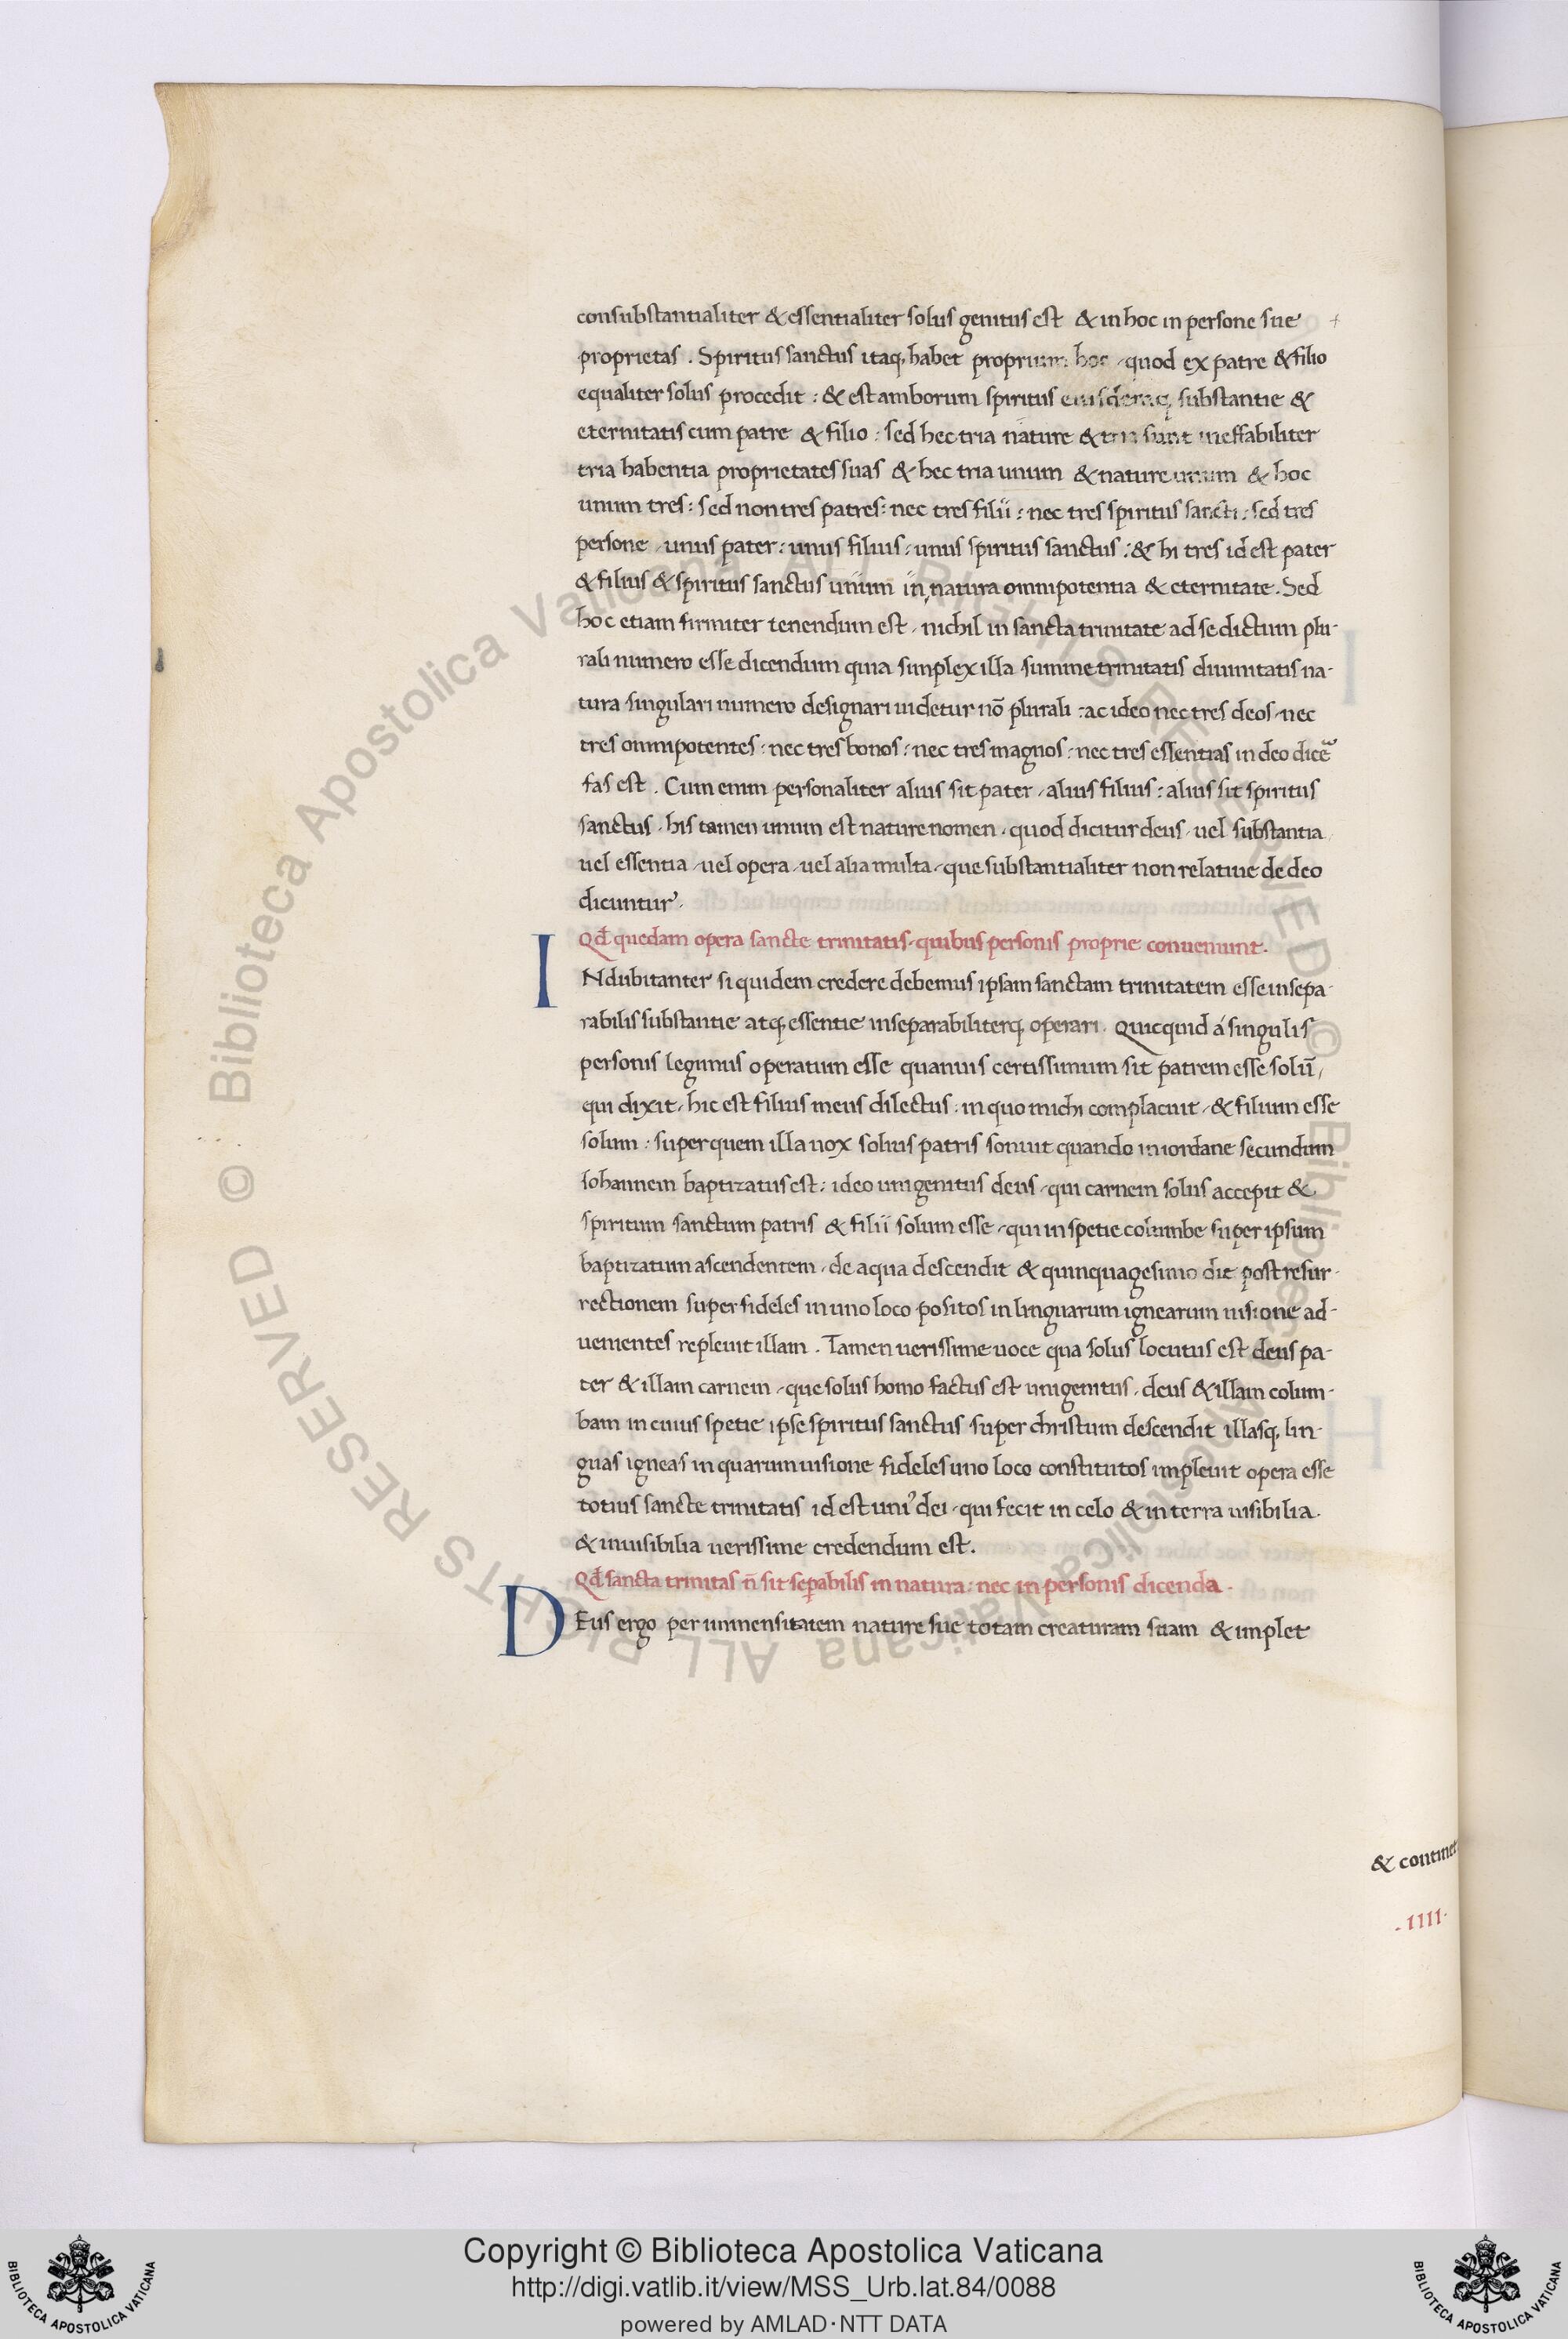 consubstantialiter & essentialiter solus genitus est & in hoc in persone sue
proprietas . Spiritus sanctus itaq; habet proprium hoc quod ex patre & filio
equaliter solus procedit : & est amborum spiritus eiusdemq; substantie &
eternitatis cum patre & filio : sed hec tria nature & tria sunt ineffabiliter
tria habentia proprietates suas & hec tria unum & nature unum & hoc
unum tres : sed non tres patres : nec tres filii : nec tres spiritus sancti : sed tres
persone , unus pater : unus filius : unus spiritus sanctus : & hi tres id est pater
& filius & spiritus sanctus unum in natura omnipotentia & eternitate . Sed
hoc etiam firmiter tenendum est , nichil in sancta trinitate ad se dictum plu-
rali numero esse dicendum quia simplex illa summe trinitatis diuinitatis na-
tura singulari numero designari uidetur nō plurali : ac ideo nec tres deos , nec
tres omnipotentes : nec tres bonos : nec tres magnos : nec tres essentias in deo
fas est . Cum enim personaliter alius sit pater , alius filius : alius sit spiritus
sanctus , his tamen unum est nature nomen , quod dicitur deus , uel substantia
uel essentia , uel opera , uel alia multa , que substantialiter non relatiue de deo
dicuntur .
Qd̄ quedam opera sancte trinitatis , quibus personis proprie conueniunt .
INdubitanter si quidem credere debemus ipsam sanctam trinitatem esse insepa-
rabilis substantie atq; essentie inseparabiliterq; operari . Quicquid á singulis
personis legimus operatum esse quanuis certissimum sit patrem esse solū ,
qui dixit , hic est filius meus dilectus : in quo michi complacuit , & filium esse
solum : super quem illa uox solius patris sonuit quando in iordane secundum
Iohannem baptizatus est : ideo unigenitus deus , qui carnem solus accepit &
spiritum sanctum patris & filii solum esse , qui in spetie columbe super ipsum
baptizatum ascendentem , de aqua descendit & quinquagesimo die post resur-
rectionem super fideles in uno loco positos in linguarum ignearum uisione ad-
uenientes repleuit illam . Tamen uerissime uoce qua solus locutus est deus pa-
ter & illam carnem , que solus homo factus est unigenitus , deus & illam colum-
bam in cuius spetie ipse spiritus sanctus super christum descendit illasq; lin-
guas igneas in quarum uisione fideles uno loco constitutos impleuit opera esse
totius sancte trinitatis id est uni' dei , qui fecit in celo & in terra uisibilia
& inuisibilia uerissime credendum est .
Qd̄ sancta trinitas n̄ sit sepabilis in natura : nec in personis dicenda .
DEus ergo per immensitatem nature sue totam creaturam suam & implet
& continet
. IIII .
© Biblioteca Apostolica Vaticana ALL RIGHTS RESERVED
© Biblioteca Apostolica Vaticana ALL RIGHTS RESERVED
Copyright © Biblioteca Apostolica Vaticana
http://digi.vatlib.it/view/MSS_Urb.lat.84/0088
powered by AMLAD·NTT DATA
BIBLIOTECA APOSTOLICA VATICANA
BIBLIOTECA APOSTOLICA VATICANA